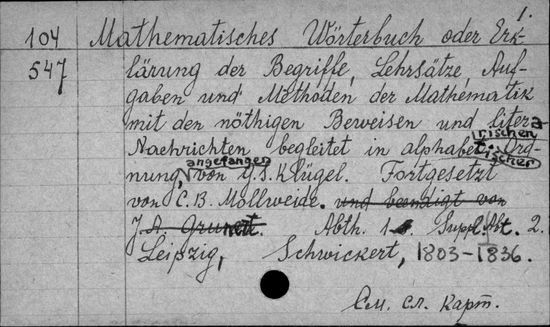 1.
104 Mathematisches Wörterbuch oder Erk-
547 lärung der Begriffe, Lehrsätze, Auf-
gaben und Methoden der Mathematik
mit den nöthigen Beweisen und litera-
rischen
Nachrichten begleitet in alphabetischer Ord-
nung, angefangen von G.S. Klügel. Fortgesetzt
von C.B. Mollweide. und beendigt von
J.A. Grunert. Abth. 1 Suppl. Abt. 2.
Leipzig, Schwickert, 1803-1836.
См. сл. карт.